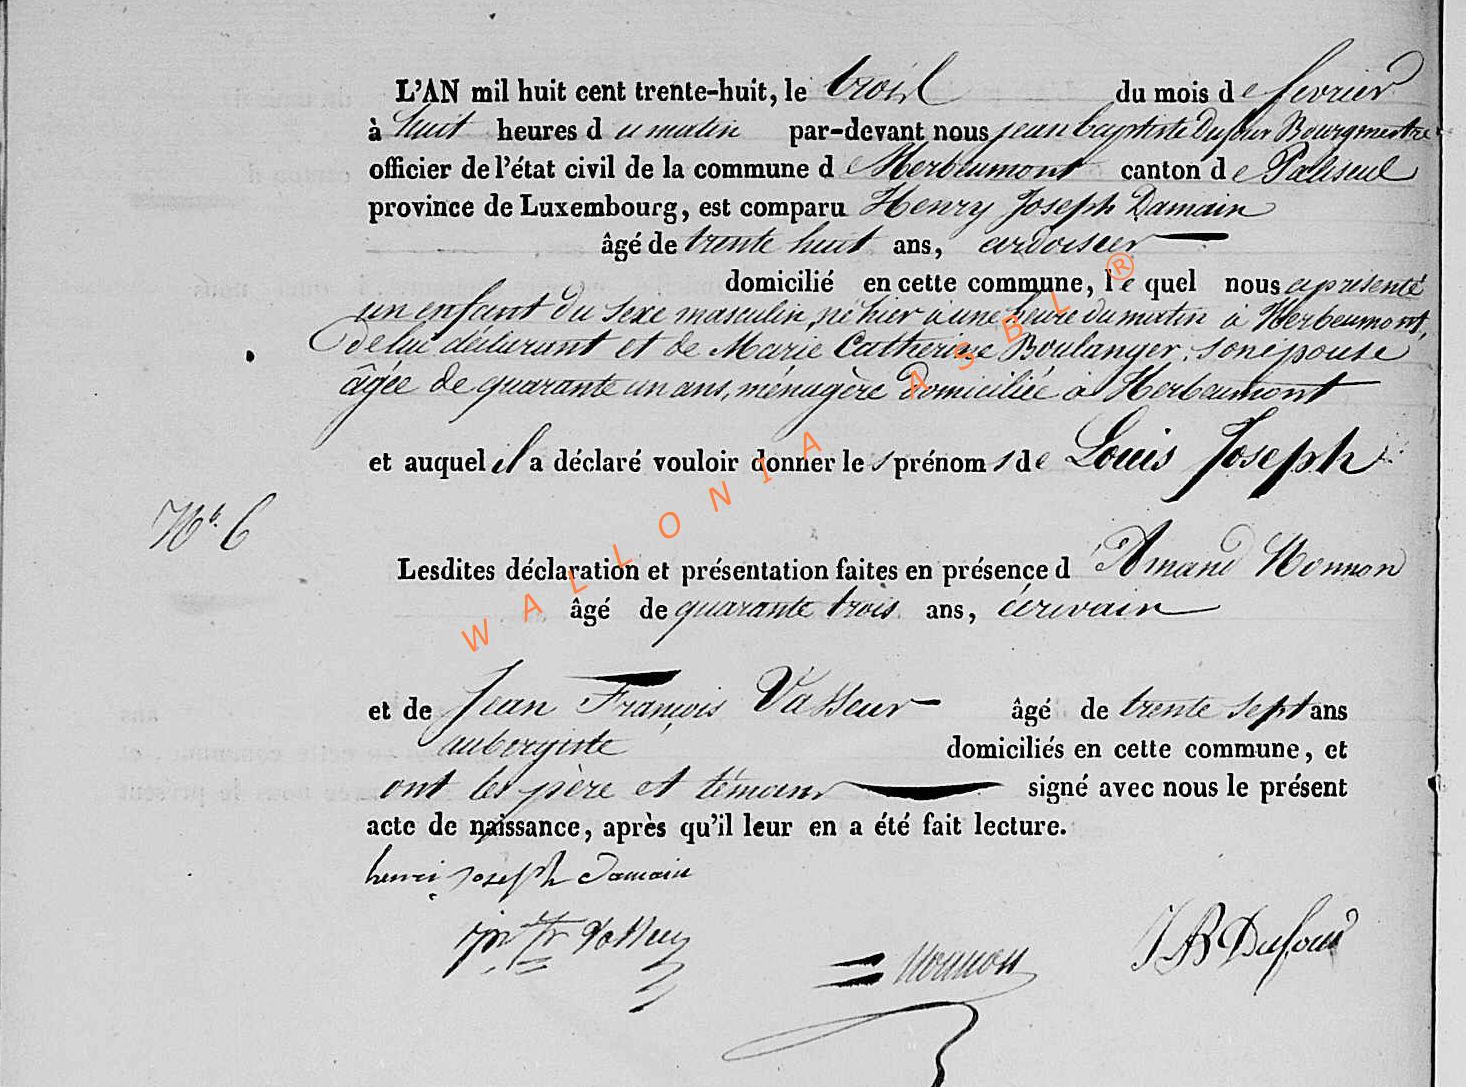 L'AN mil huit cent trente-huit, le trois du mois de fevrier
à huit heures du matin par-devant nous jean baptiste Dufour Bourgmestre
officier de l'état civil de la commune de Herbeumont canton de Paliseul
province de Luxembourg, est comparu Henry Joseph Damain
âgé de trente huit ans, ardoisier
domicilié en cette commune, lequel nous a présenté
un enfant du sexe masculin, né hier à une heure du matin à Herbeumont,
de lui déclarant et de Marie Catherine Boulanger, son épouse
âgée de quarante un ans, ménagère domiciliée à Herbeumont
et auquel il a déclaré vouloir donner les prénoms de Louis Joseph
No. 6
Lesdites déclaration et présentation faites en présence d'Amand Monnon
âgé de quarante trois ans, écrivain
et de Jean François Vasseur âgé de trente sept ans
aubergiste domiciliés en cette commune, et
ont les père et témoins signé avec nous le présent
acte de naissance, après qu'il leur en a été fait lecture.
henri joseph damain
Vasseur
Monnon
J B Dufour
WALLONIA ASBL ®